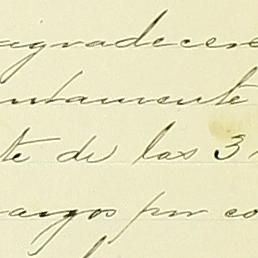 agradecere
ntamente
te de las 3
argos por co